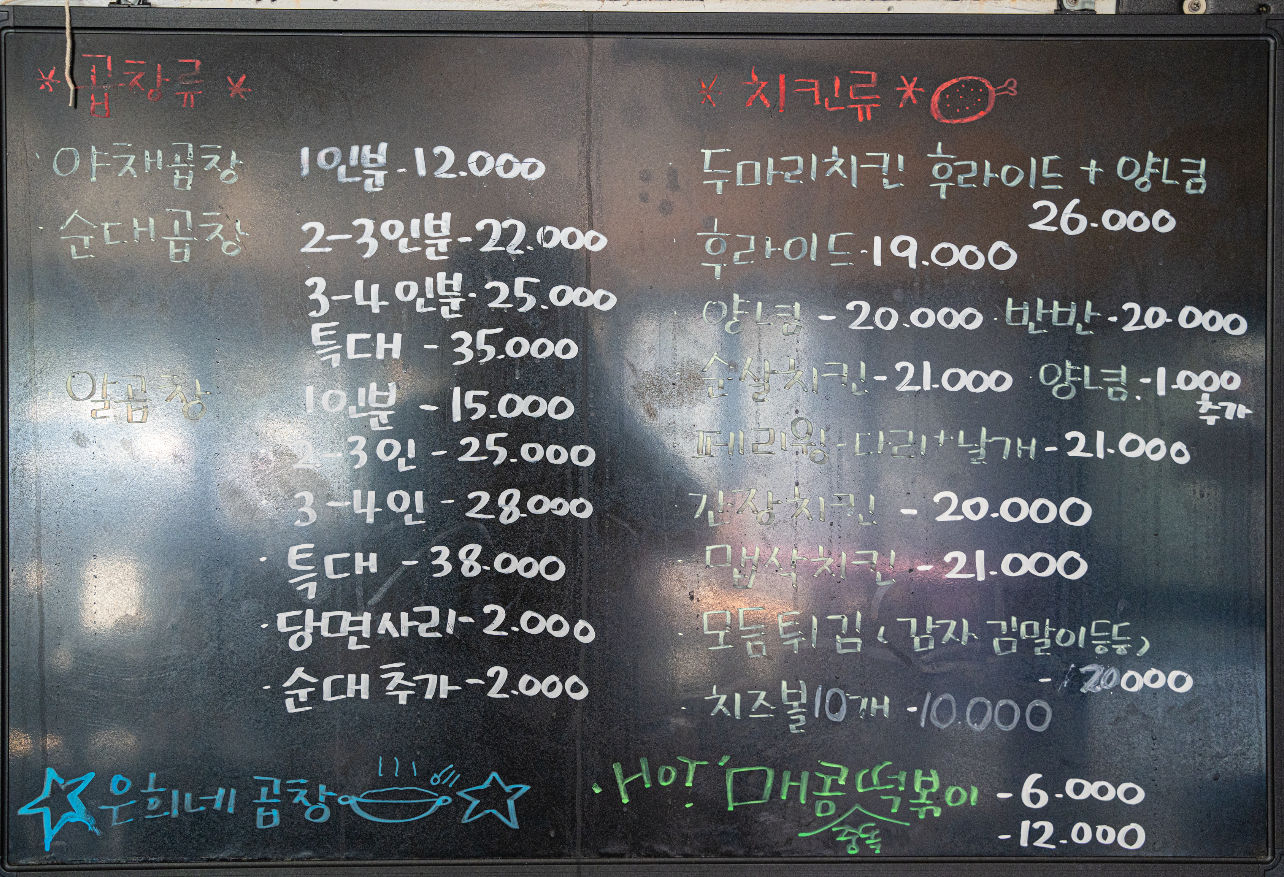 * 곱창류 *
· 야채곱창 1인분 - 12.000
· 순대곱창 2-3인분 - 22.000
3-4인분 · 25.000
특대 - 35.000
알곱창 1인분 - 15.000
2-3인 - 25.000
3-4인 - 28.000
· 특대 - 38.000
· 당면사리 - 2.000
· 순대추가 - 2.000
우희네 곱창
* 치킨류 *
· 두마리치킨 후라이드 + 양념
26.000
· 후라이드 · 19.000
· 양념 - 20.000 · 반반 - 20.000
· 순살치킨 - 21.000 양념 - 1.000
추가
· 페리윙 - 다리+날개 - 21.000
· 간장치킨 - 20.000
· 맵삭치킨 - 21.000
· 모듬튀김 (감자 김말이등등)
- 20000
· 치즈볼10개 - 10.000
· HOT 매콤떡볶이 - 6.000
- 12.000